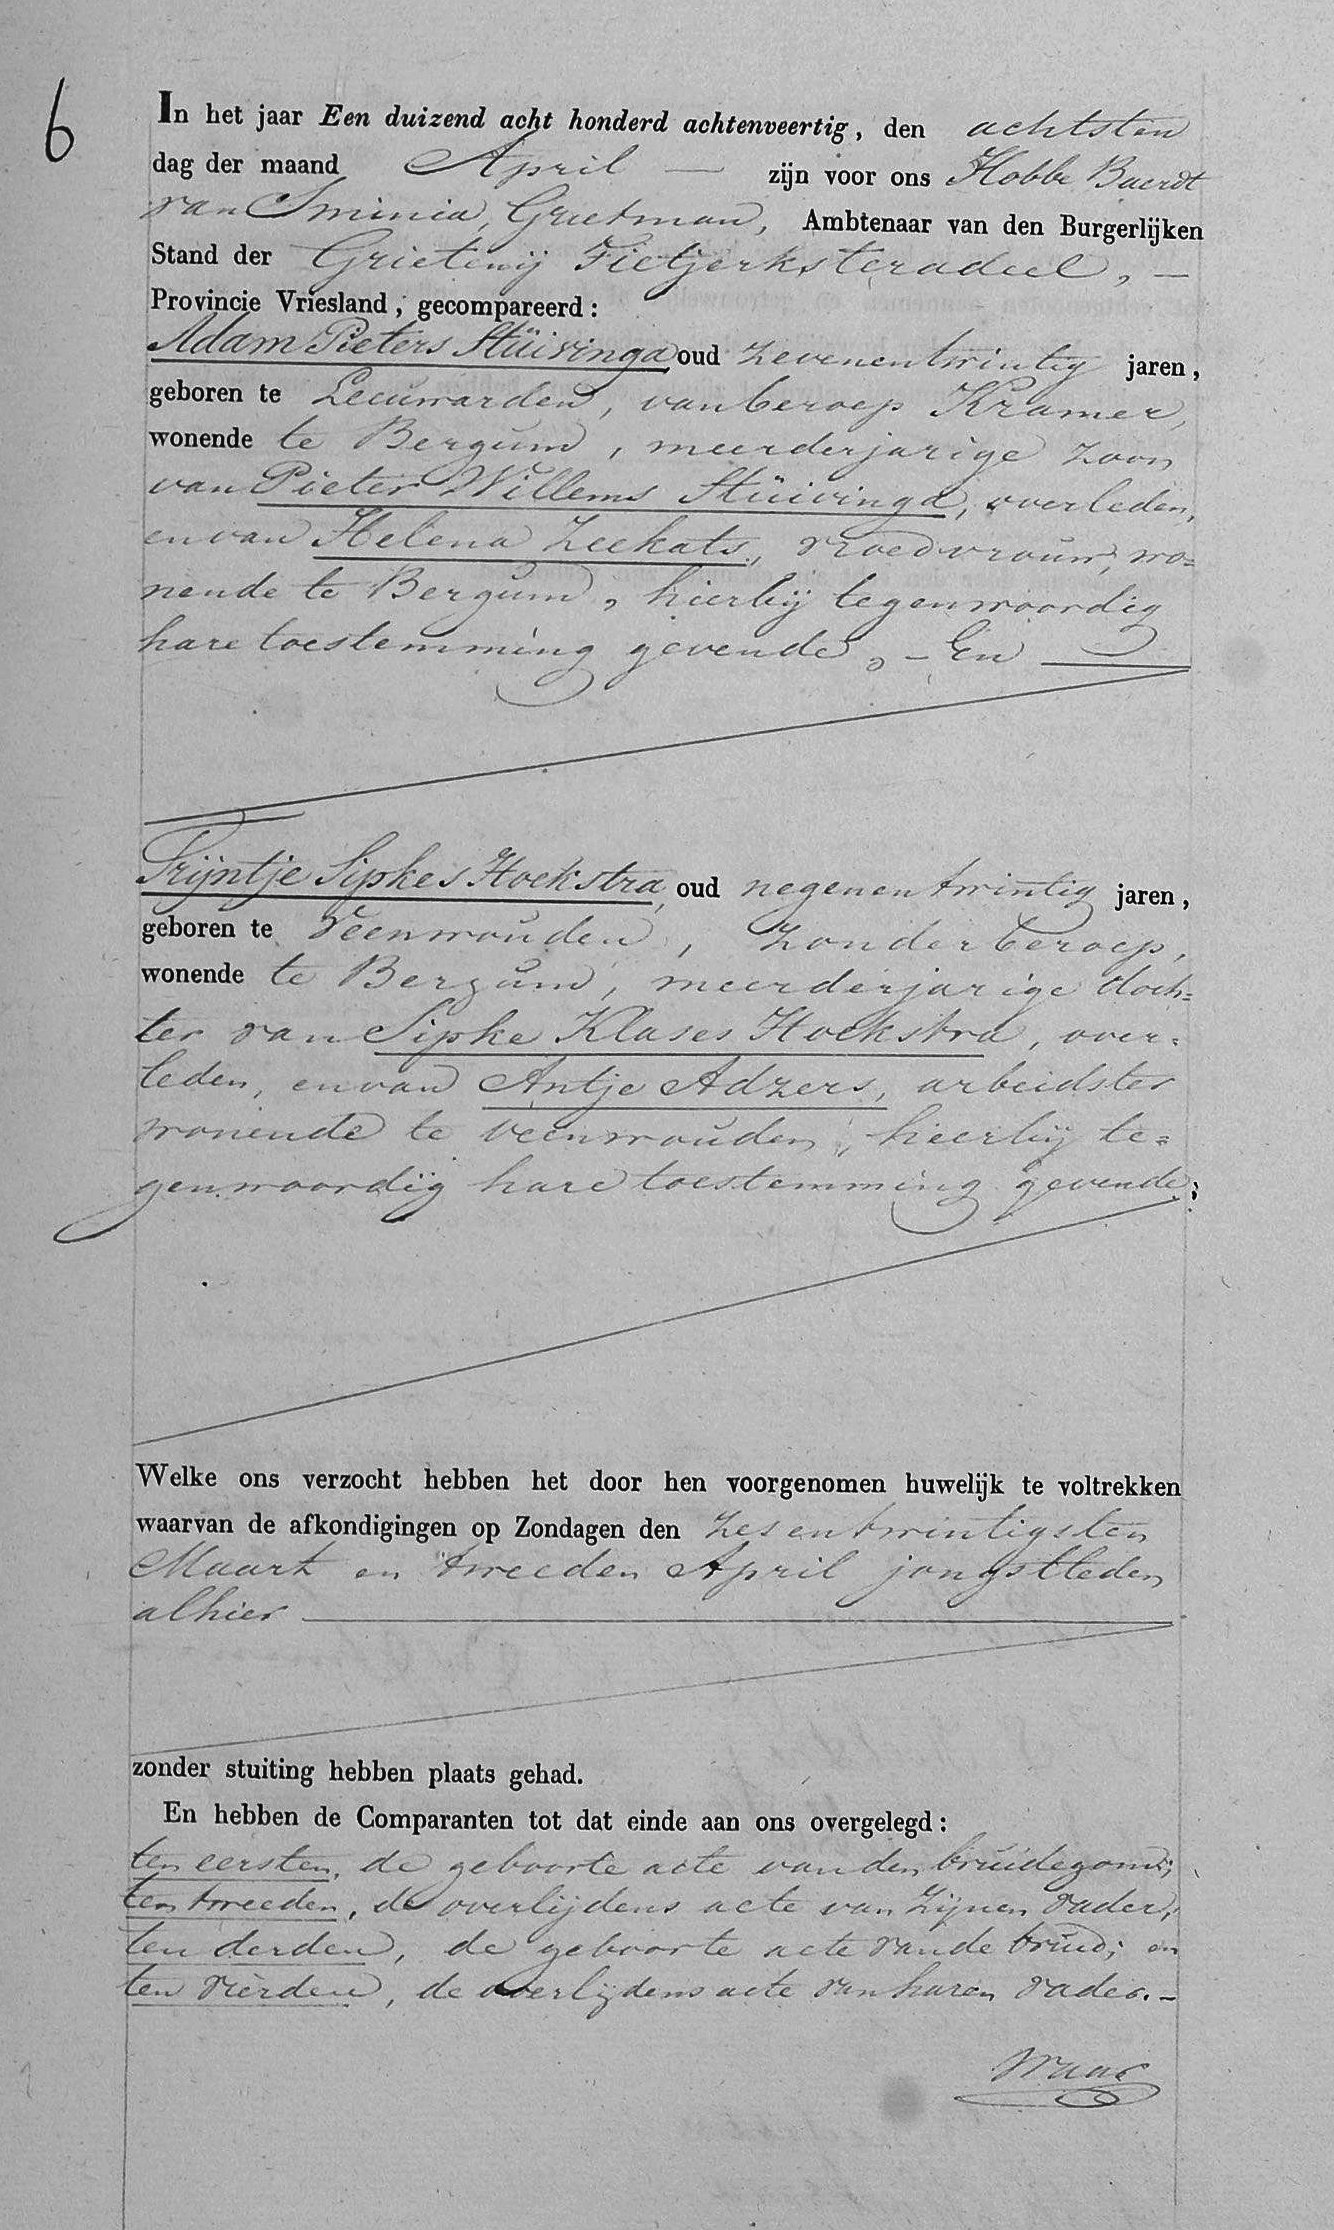 6
In het jaar Een duizend acht honderd achtenveertig, den achtsten
dag der maand April — zijn voor ons Hobbe Baerdt
van Sminia, Grietman, Ambtenaar van den Burgerlijken
Stand der Grietenij Tietjerksteradeel, —
Provincie Vriesland, gecompareerd:
Adam Pieters Stüivinga oud zevenentwintig jaren,
geboren te Leeuwarden, van beroep Kramer,
wonende te Bergum, meerderjarige zoon
van Pieter Willems Stüivinga, overleden,
en van Helena Zeekats, vroedvrouw, wo=
nende te Bergum, hierbij tegenwoordig
hare toestemming gevende, – En
Trijntje Sipkes Hoekstra, oud negenentwintig jaren,
geboren te Veenwouden, zonder beroep,
wonende te Bergum, meerderjarige doch=
ter van Sipke Klases Hoekstra, over=
leden, en van Antje Adzers, arbeidster
wonende te Veenwouden, hierbij te=
genwoordig hare toestemming gevende;
Welke ons verzocht hebben het door hen voorgenomen huwelijk te voltrekken
waarvan de afkondigingen op Zondagen den zesentwintigsten
Maart en tweeden April jongstleden
alhier
zonder stuiting hebben plaats gehad.
En hebben de Comparanten tot dat einde aan ons overgelegd:
ten eersten, de geboorte acte van den bruidegom;
ten tweeden, de overlijdens acte van zijnen vader;
ten derden, de geboorte acte van de bruid; en
ten vierden, de overlijdens acte van haren vader. –
Waar